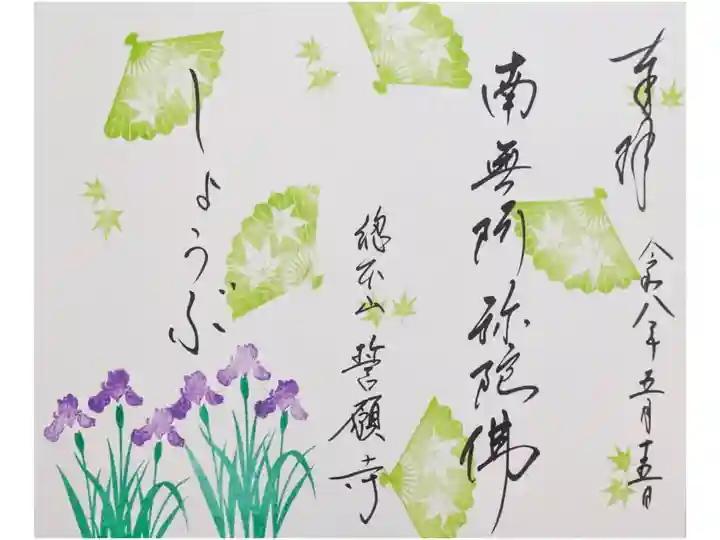 奉拝
令和八年五月十五日
南無阿弥陀佛
總本山 誓願寺
しょうぶ